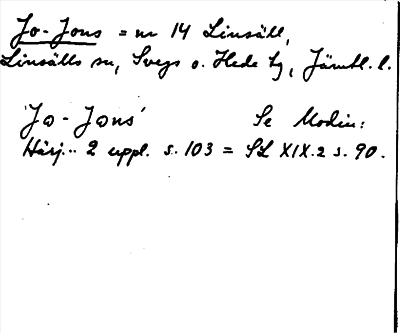 Jo-Jons = nr 14 Linsäll,
Linsälls sn, Svegs o. Hede tg, Jämtl. l.
'Jo-Jons' Se Modin:
Härj... 2 uppl. s. 103 = SL XIX.2 s. 90.